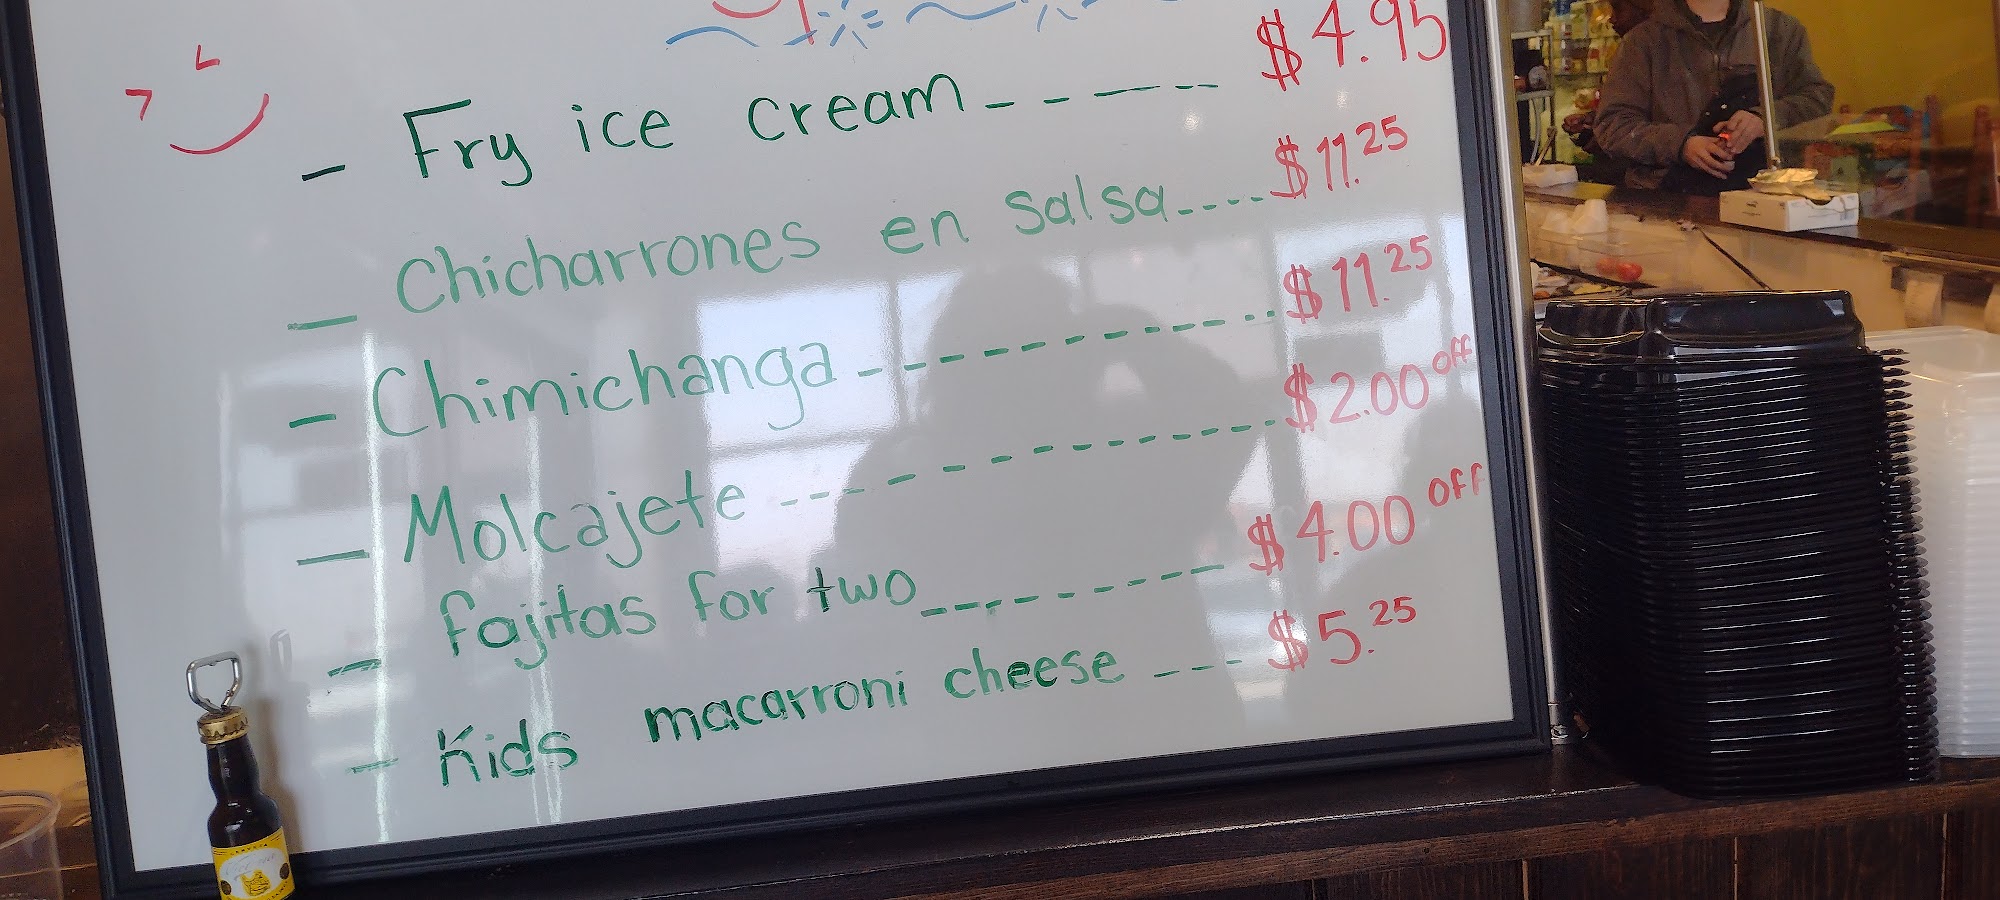 - Fry ice cream ----- $4.95
- Chicharrones en salsa.... $11.25
- Chimichanga ------------ $11.25
- Molcajete ------------ $2.00 off
- fajitas for two --------- $4.00 off
- Kids macarroni cheese --- $5.25